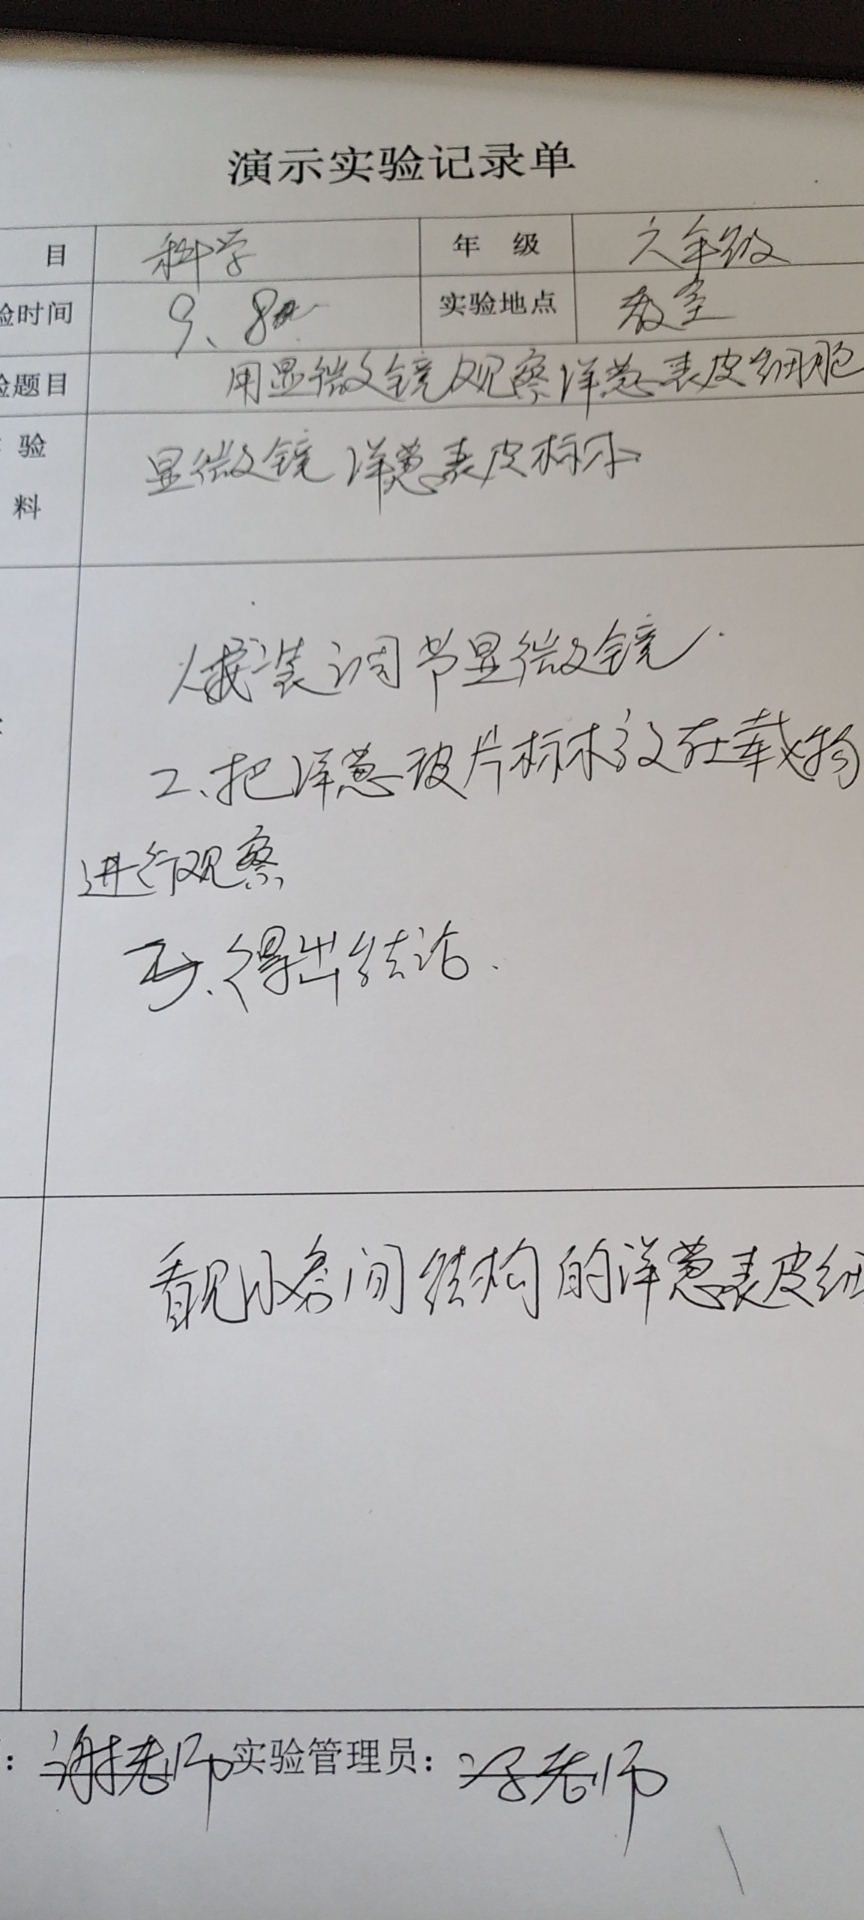 演示实验记录单
目 科学 年 级 六年级
验时间 9、8 实验地点 教室
验题目 用显微镜观察洋葱表皮细胞
验 料 显微镜 洋葱表皮标本
装调节显微镜.
2、把洋葱玻片标本放在载物
进行观察
3、得出结论.
看见小房间结构的洋葱表皮细
: 谢老师 实验管理员: 冯老师